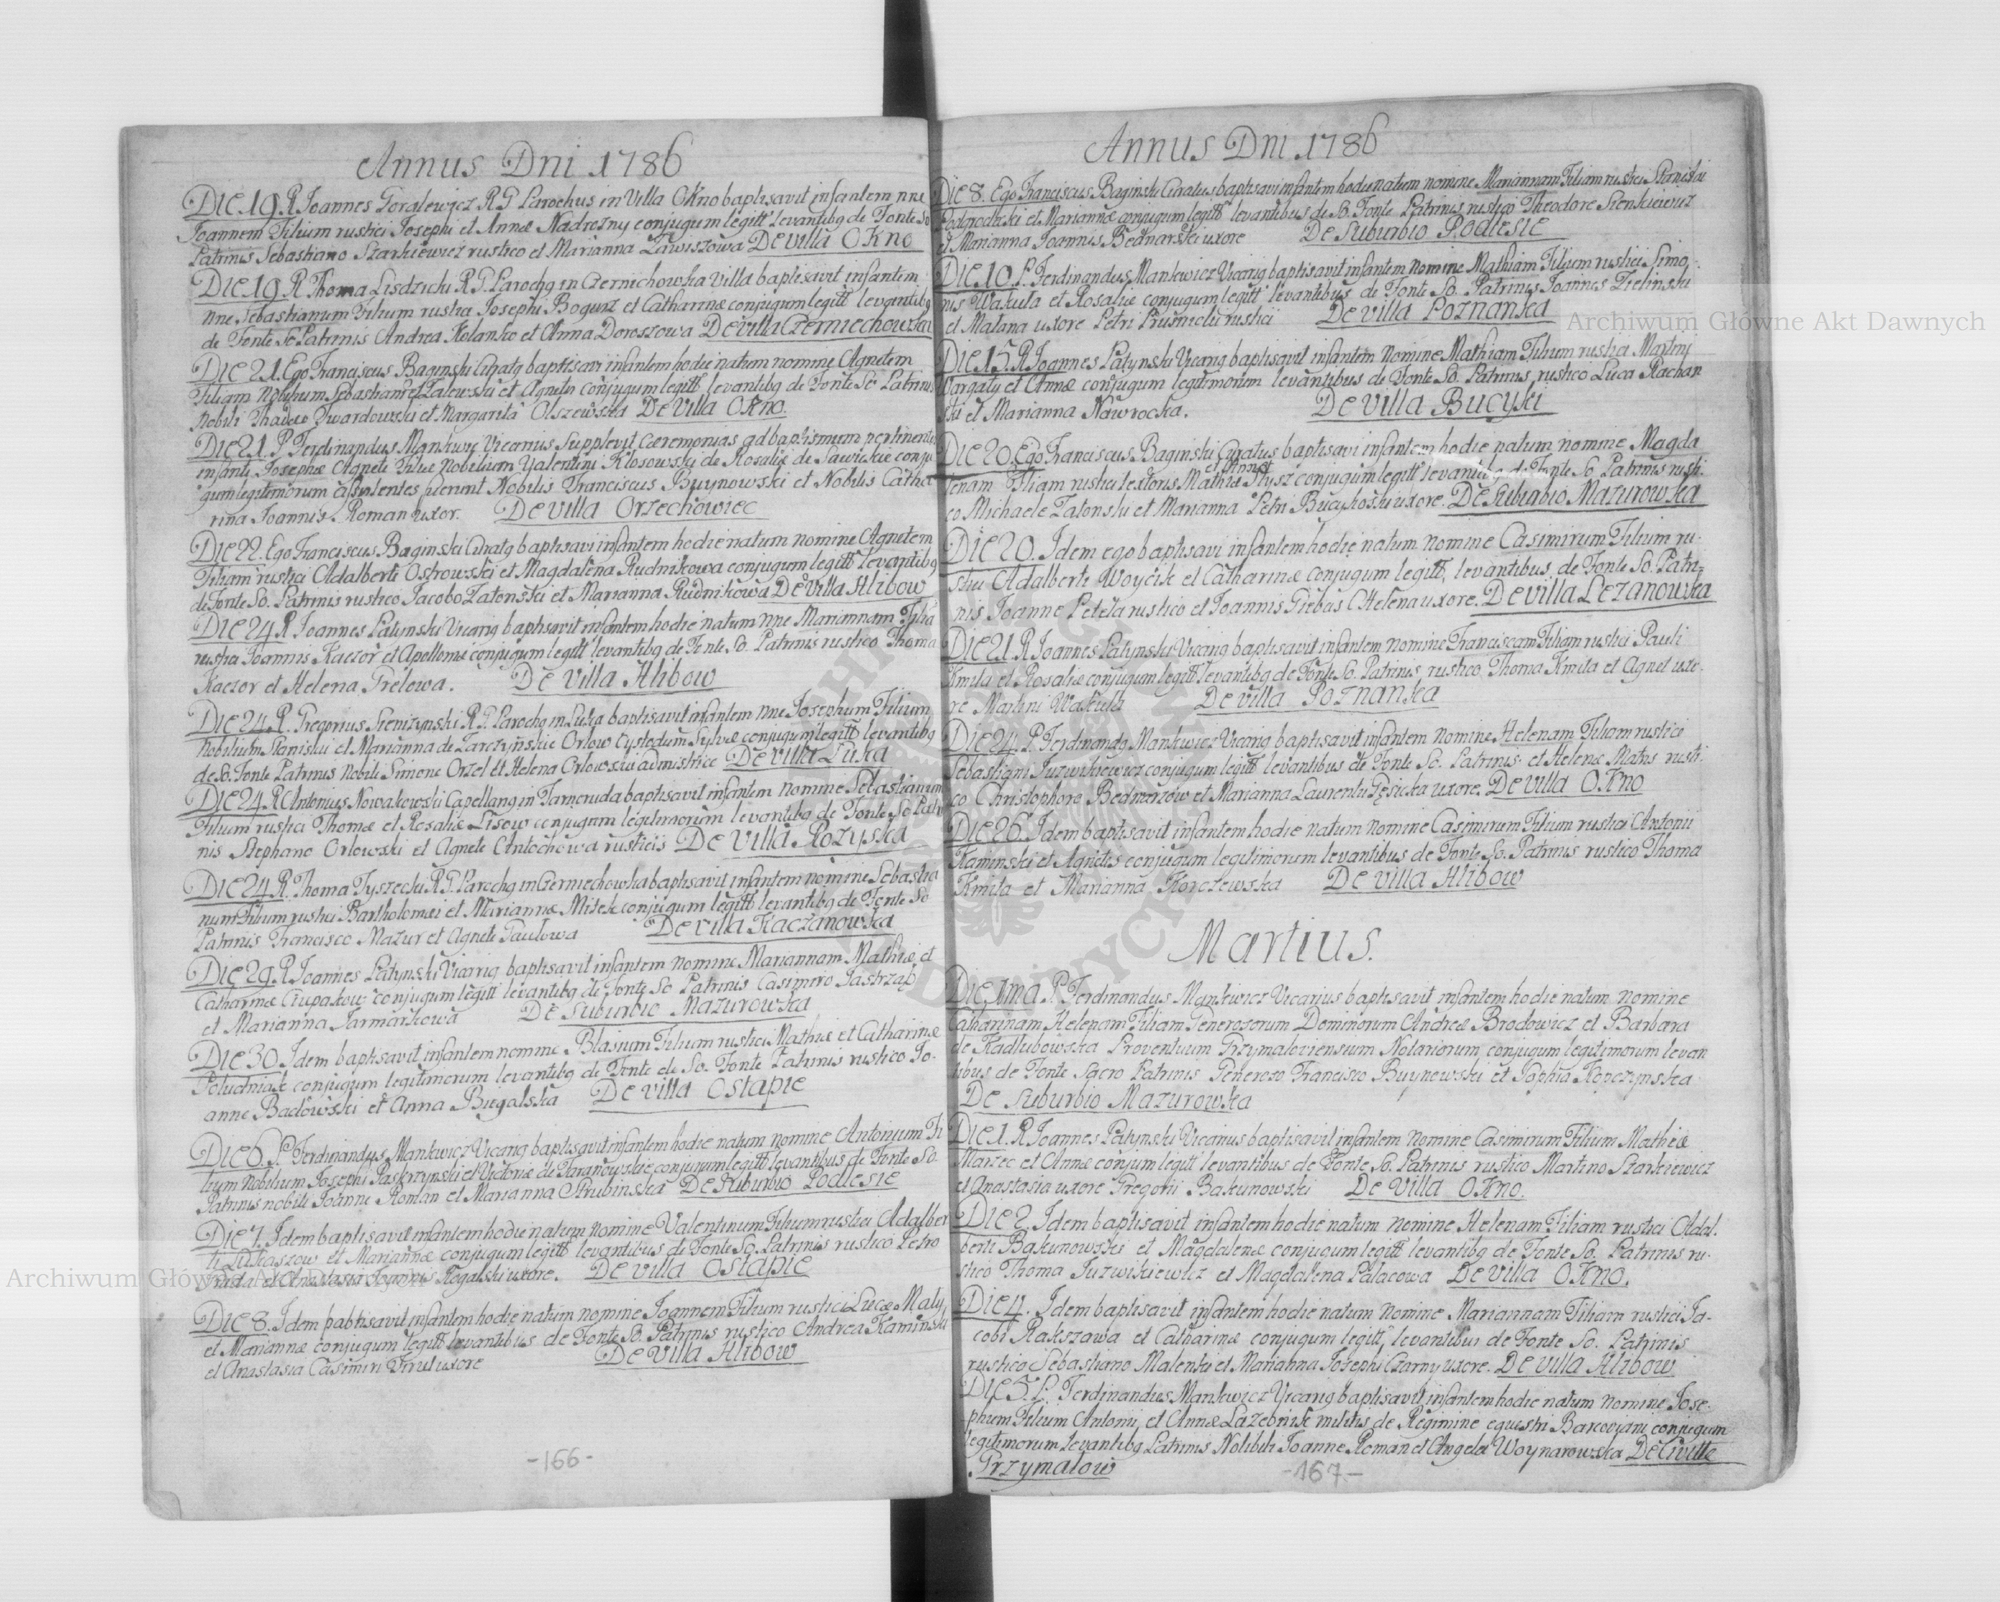 Annus Dni 1786
Die 19. R Joannes Goralewicz R G Parochus in Villa Okno baptisavit infantem nne
Joannem Filium rustici Josephi et Annæ Nadrozny conjugum legitt levantibq de Fonte So
Patrinis Sebastiano Szarkiewicz rustico et Marianna Ławiszowa De villa Okno
Die 19 R Thoma Lisdzicki R G Parochq in Czernichowska villa baptisavit infantem
nne Sebastianum Filium rustici Josephi Bogunz et Catharinæ conjugum legitt levantibq
de Fonte So Patrinis Andrea Kolanko et Anna Doroszowa De villa Czerniechowska
Die 21. Ego Franciscus Baginski Curatq baptisavi infantem hodie natum nomine Agnetem
Filiam Nobilium Sebastiani Zalewski et Agnetis conjugum legitt levantibq de Fonte So Patrinis
Nobili Thadeo Twardowski et Margarita Olszewska De villa Okno.
Die 21. P Ferdinandus Mankwic Vicarius Supplevit Cæremonias ad baptismum pertinentes
infanti Josephæ Agneti Filiæ Nobilium Valentini Kłosowski de Rosalia de Sawickie conju
gum legitimorum assistentes fuerunt Nobilis Franciscus Buynowski et Nobilis Catha
rina Joannis Roman uxor. De villa Orzechowiec
Die 22. Ego Franciscus Baginski Curatq baptisavi infantem hodie natum nomine Agnetem
Filiam rustici Adalberti Ostrowski et Magdalena Rudnikowa conjugum legitt levantibq
de Fonte So. Patrinis rustico Jacobo Zatonski et Marianna Rudnikowa De villa Hlibow
Die 24 R Joannes Patynski Vicariq baptisavit infantem hodie natum nne Mariannam Filia
rustici Joannis Kaczor et Apolloniæ conjugum legitt levantibq de Fonte So. Patrinis rustico Thoma
Kaczor et Helena Grelowa. De Villa Hlibow
Die 24. R. Gregorius Siemizynski R G Parochq in Luka baptisavit infantem nne Josephum Filium
Nobilium Stanislai et Marianna de Zarczyńskie Orlow Custodum Sylvæ conjugum legitt levantibq
de So. Fonte Patrinis Nobili Simone Orzel et Helena Orlowski admistrice De villa Luka
Die 24 R Antonius Nowakowski Capellanq in Tarnoruda baptisavit infantem nomine Sebastianum
Filium rustici Thomæ et Rosaliæ Lisow conjugum legitimorum levantibq de Fonte So Patri
nis Stephano Orlowski et Agnete Antochowa rusticis De Villa Rozyska
Die 24 R. Thoma Tyszecki R G Parochq in Czerniechowka baptisavit infantem nomine Sebastia
num Filium rustici Bartholomæi et Mariannæ Misek conjugum legitt levantibq de Fonte So
Patrinis Francisco Mazur et Agnete Pawlowa De villa Kaczanowka
Die 29. R. Joannes Patynski Vicariq baptisavit infantem nomine Mariannam Mathiæ et
Catharinæ Czupakow conjugum legitt levantibq de Fonte So Patrinis Casimiro Jastrząb
et Marianna Jarmarkowa De Suburbio Mazurowka
Die 30. Idem baptisavit infantem nomine Blasium Filium rustici Mathiæ et Catharinæ
Poludniak conjugum legitimorum levantibq de Fonte de So. Fonte Patrinis rustico Jo-
anne Badowski et Anna Biegalska De villa Ostapie
Die 6. P Ferdinandus Mankwicz Vicariq baptisavit infantem hodie natum nomine Antonium Fi
lium Nobilium Josephi Paskrzynski et Victoriæ de Taranowskie conjugum legitt levantibus de Fonte So.
Patrinis nobili Joanne Roman et Marianna Strubinska De Suburbio Podlesie
Die 7. Idem baptisavit infantem hodie natum nomine Valentinum Filium rustici Adalber
ti Lukaszow et Mariannæ conjugum legitt levantibus de Fonte So. Patrinis rustico Petro
et Anastasia Joannis Rogalski uxore. De villa Ostapie
Die 8. Idem babtisavit infantem hodie natum nomine Joannem Filium rustici Lucæ Maly
et Mariannæ conjugum legitt levantibus de Fonte So Patrinis rustico Andrea Kaminski
et Anastasia Casimiri Firul uxore De villa Hlibow
-166-
Annus Dni 1786
Die 8. Ego Franciscus Baginski Curatus baptisavi infantem hodie natum nomine Mariannam Filiam rustici Stanislai
Podgrodzki et Mariannæ conjugum legitt levantibus de So Fonte Patrinis rustico Theodore Sienkiewicz
et Marianna Joannis Bednarski uxore De Suburbio Podlesie
Die 10. P. Ferdinandus Mankwicz Vicariq baptisavit infantem nomine Mathiam Filium rustici Simo-
nis Wakula et Rosaliæ conjugum legitt levantibus de Fonte So. Patrinis Joannes Zielinski
et Malana uxore Petri Prusmolu rustici De villa Poznanka
Die 15. R Joannes Patynski Vicariq baptisavit infantem nomine Mathiam Filium rustici Martini
Wargaty et Annæ conjugum legitimorum levantibus de Fonte So. Patrinis rustico Luca Kachar
ski et Marianna Nawrocka. De villa Bucyki
Die 20. Ego Franciscus Baginski Curatus baptisavi infantem hodie natum nomine Magda
lenam Filiam rustici textoris Mathiæ et Annæ Hysz conjugum legitt levantibq de Fonte So Patrinis rusti-
co Michaele Zatonski et Marianna Petri Bucykoski uxore. De Suburbio Mazurowka
Die 20. Idem ego baptisavi infantem hodie natum nomine Casimirum Filium ru-
stici Adalberti Woycik et Catharinæ conjugum legitt, levantibus de Fonte So. Patri-
nis Joanne Petela rustico et Joannis Giebas Helena uxore. De villa Lezanowka
Die 21. R Joannes Patynski Vicariq baptisavit infantem nomine Franciscam Filiam rustici Pauli
Kmita et Rosaliæ conjugum legitt levantibq de Fonte So Patrinis rustico Thoma Kmita et Agnet uxo-
re Martini Wakulu De villa Poznanka
Die 24. P. Ferdinandq Mankwicz Vicariq baptisavit infantem nomine Helenam Filiam rustici
Sebastiani Juzwikiewicz conjugum legitt levantibus de Fonte So. Patrinis et Helenæ Matris rusti-
co Christophoro Bednarzow et Marianna Laurentii Tesicka uxore. De villa Okno
Die 26. Idem baptisavit infantem hodie natum nomine Casimirum Filium rustici Antonii
Kaminski et Agnetis conjugum legitimorum levantibus de Fonte So. Patrinis rustico Thoma
Kmita et Marianna Korczewska De villa Hlibow
Martius.
Die 1ma P Ferdinandus Mankwicz Vicarius baptisavit infantem hodie natum nomine
Catharinam Helenam Filiam Generosorum Dominorum Andreæ Brodowicz et Barbara
de Kadlubowska Proventuum Grzymaloviensium Notariorum conjugum legitimorum levan
tibus de Fonte Sacro Patrinis Generoso Francisco Buynowski et Sophia Kopczynska
De Suburbio Mazurowka
Die 1. R Joannes Patynski Vicarius baptisavit infantem nomine Casimirum Filium Mathiæ
Marzec et Annæ conjum legitt levantibus de Fonte So. Patrinis rustico Martino Szarkiewicz
et Anastasia uxore Gregorii Bakunowski De villa Okno.
Die 2. Idem baptisavit infantem hodie natum nomine Helenam Filiam rustici Adal-
berti Bakunowski et Magdalenæ conjugum legitt levantibq de Fonte So. Patrinis ru-
stico Thoma Juzwikiewicz et Magdalena Palacowa De villa Okno.
Die 4. Idem baptisavit infantem hodie natum nomine Mariannam Filiam rustici Ja-
cobi Rakszawa et Catharinæ conjugum legitt, levantibus de Fonte So. Patrinis
rustico Sebastiano Malenki et Marianna Josephi Czarny uxore. De villa Hlibow
Die 5. P. Ferdinandus Mankwicz Vicariq baptisavit infantem hodie natum nomine Jose-
phum Filium Antonii, et Annæ Lazebnik militis de Regimine equestri Barcoviani conjugum
legitimorum levantibq Patrinis Nobili Joanne Roman et Angela Woynarowska De Civitte
Grzymalow
-167-
Archiwum Główne Akt Dawnych
Archiwum Główne Akt Dawnych